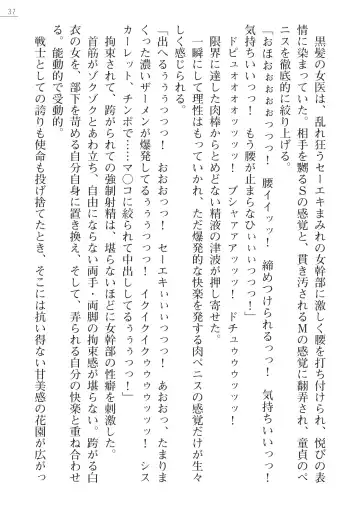 37
黒髪の女医は、乱れ狂うセーエキまみれの女幹部に激しく腰を打ち付けられ、悦びの表
情に染まっていた。相手を嬲るSの感覚と、貫き汚されるMの感覚に翻弄され、童貞のペ
ニスを徹底的に絞り上げる。
「おほぉおぉおっっっ！　腰イイッッ！　締めつけられるっっ！　気持ちいいっっ！
気持ちいいっっ！　もう腰が止まらなひぃぃいっっつ！」
ドピュォオオオッッッ！　ブシャアアアッッッ！　ドチュゥゥゥッッッ！
限界に達した肉棒からとめどない精液の津波が押し寄せた。
一瞬にして理性はもっていかれ、ただ爆発的な快楽を発する肉ペニスの感覚だけが生々
しく感じられる。
「出へるぅぅぅぅっっつ！　おおおっつ！　セーエキぃぃぃっっっ！　あおおっ、たまりま
くった濃いザーメンが爆発してるぅぅぅっっっ！　イクイクイクゥゥゥッッッ！　シス
カーレット、チンポで……マ〇コに絞られて中出ししてるぅぅぅっっ！」
拘束されて、跨がられての強制射精は、堪らないほどに女幹部の性癖を刺激した。
首筋がゾクゾクとあわ立ち、自由にならない両手・両脚の拘束感が堪らない。跨がる白
衣の女を、部下を苛める自分自身に置き換え、そして、弄られる自分の快楽と重ね合わせ
る。能動的で受動的。
戦士としての誇りも使命も投げ捨てたとき、そこには抗い得ない甘美感の花園が広がっ